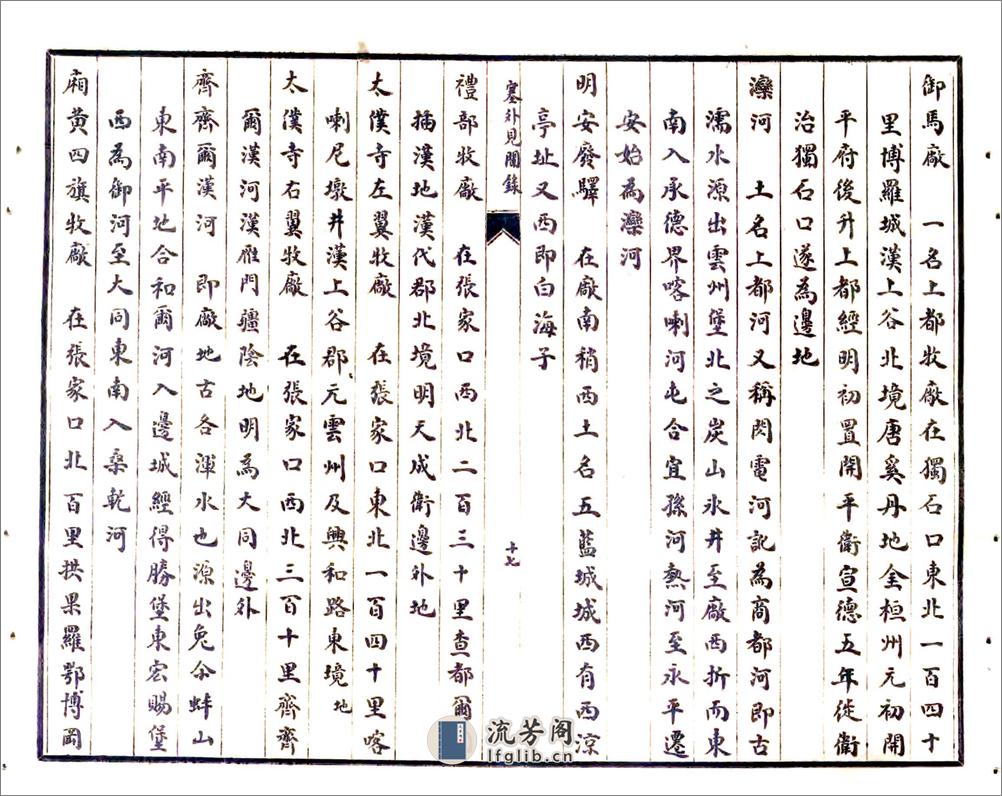 御馬廠　一名上都牧廠在獨石口東北一百四十
里博羅城漢上谷北境唐奚丹地金桓州元初開
平府後升上都經明初置開平衛宣德五年徙衛
治獨石口遂為邊地
灤河　土名上都河又稱閃電河訛為商都河即古
濡水源出雲州堡北之炭山氷井至廠西折而東
南入承德界喀喇河屯合宜孫河熱河至永平遷
安始為灤河
明安廢驛　在廠南稍西土名五藍城城西有西涼
亭址又西即白海子
塞外見聞錄
十七
禮部牧廠　在張家口西北二百三十里查都爾
插漢地漢代郡北境明天成衛邊外地
太僕寺左翼牧廠　在張家口東北一百四十里喀
喇尼墩井漢上谷郡元雲州及興和路東境地
太僕寺右翼牧廠　在張家口西北三百十里齊齊
爾漢河漢雁門疆陰地明為大同邊外
齊齊爾漢河　即廠地古各渾水也源出兔尒蚌山
東南平地合和爾河入邊城經得勝堡東宏賜堡
西為御河至大同東南入桑乾河
廂黃四旗牧廠　在張家口北百里拱果羅鄂博岡
流芳阁
lfglib.cn